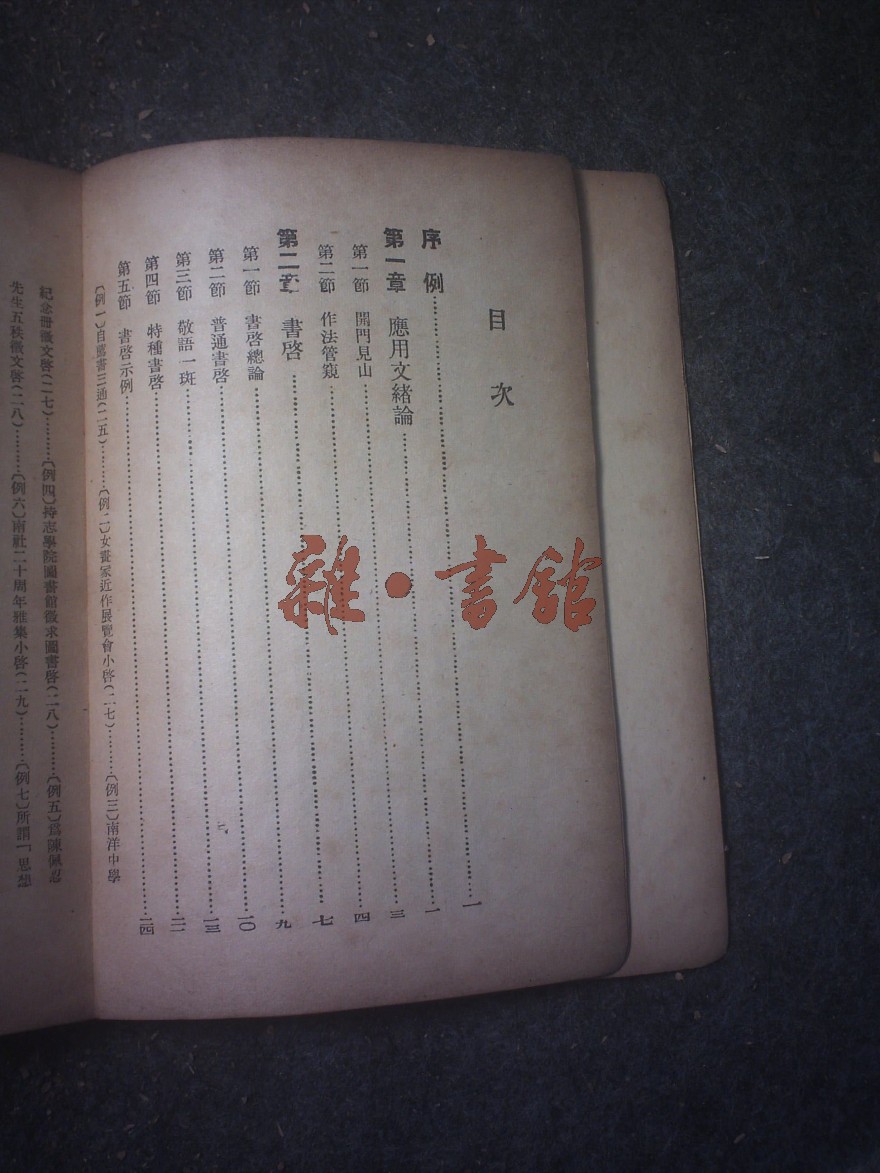 目次
序例……一
第一章 應用文緒論……一
第一節 開門見山……三
第二節 作法管窺……四
第二章 書啓……七
第一節 書啓總論……九
第二節 普通書啓……一〇
第三節 敬語一斑……一三
第四節 特種書啓……二二
第五節 書啓示例……二四
〔例一〕自薦書三通(二五)………〔例二〕女畫家近作展覽會小啓(二七)………〔例三〕南洋中學
紀念冊徵文啓(二七)………〔例四〕持志學院圖書館徵求圖書啓(二八)………〔例五〕爲陳佩忍
先生五秩徵文啓(二八)………〔例六〕南社二十周年雅集小啓(二九)………〔例七〕所謂「思想
雜·書館